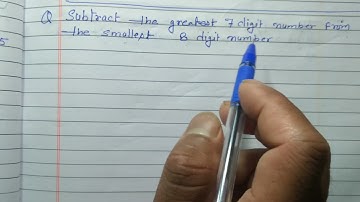 Q Subtract the greatest 7 digit number from
the smallest 8 digit number
5